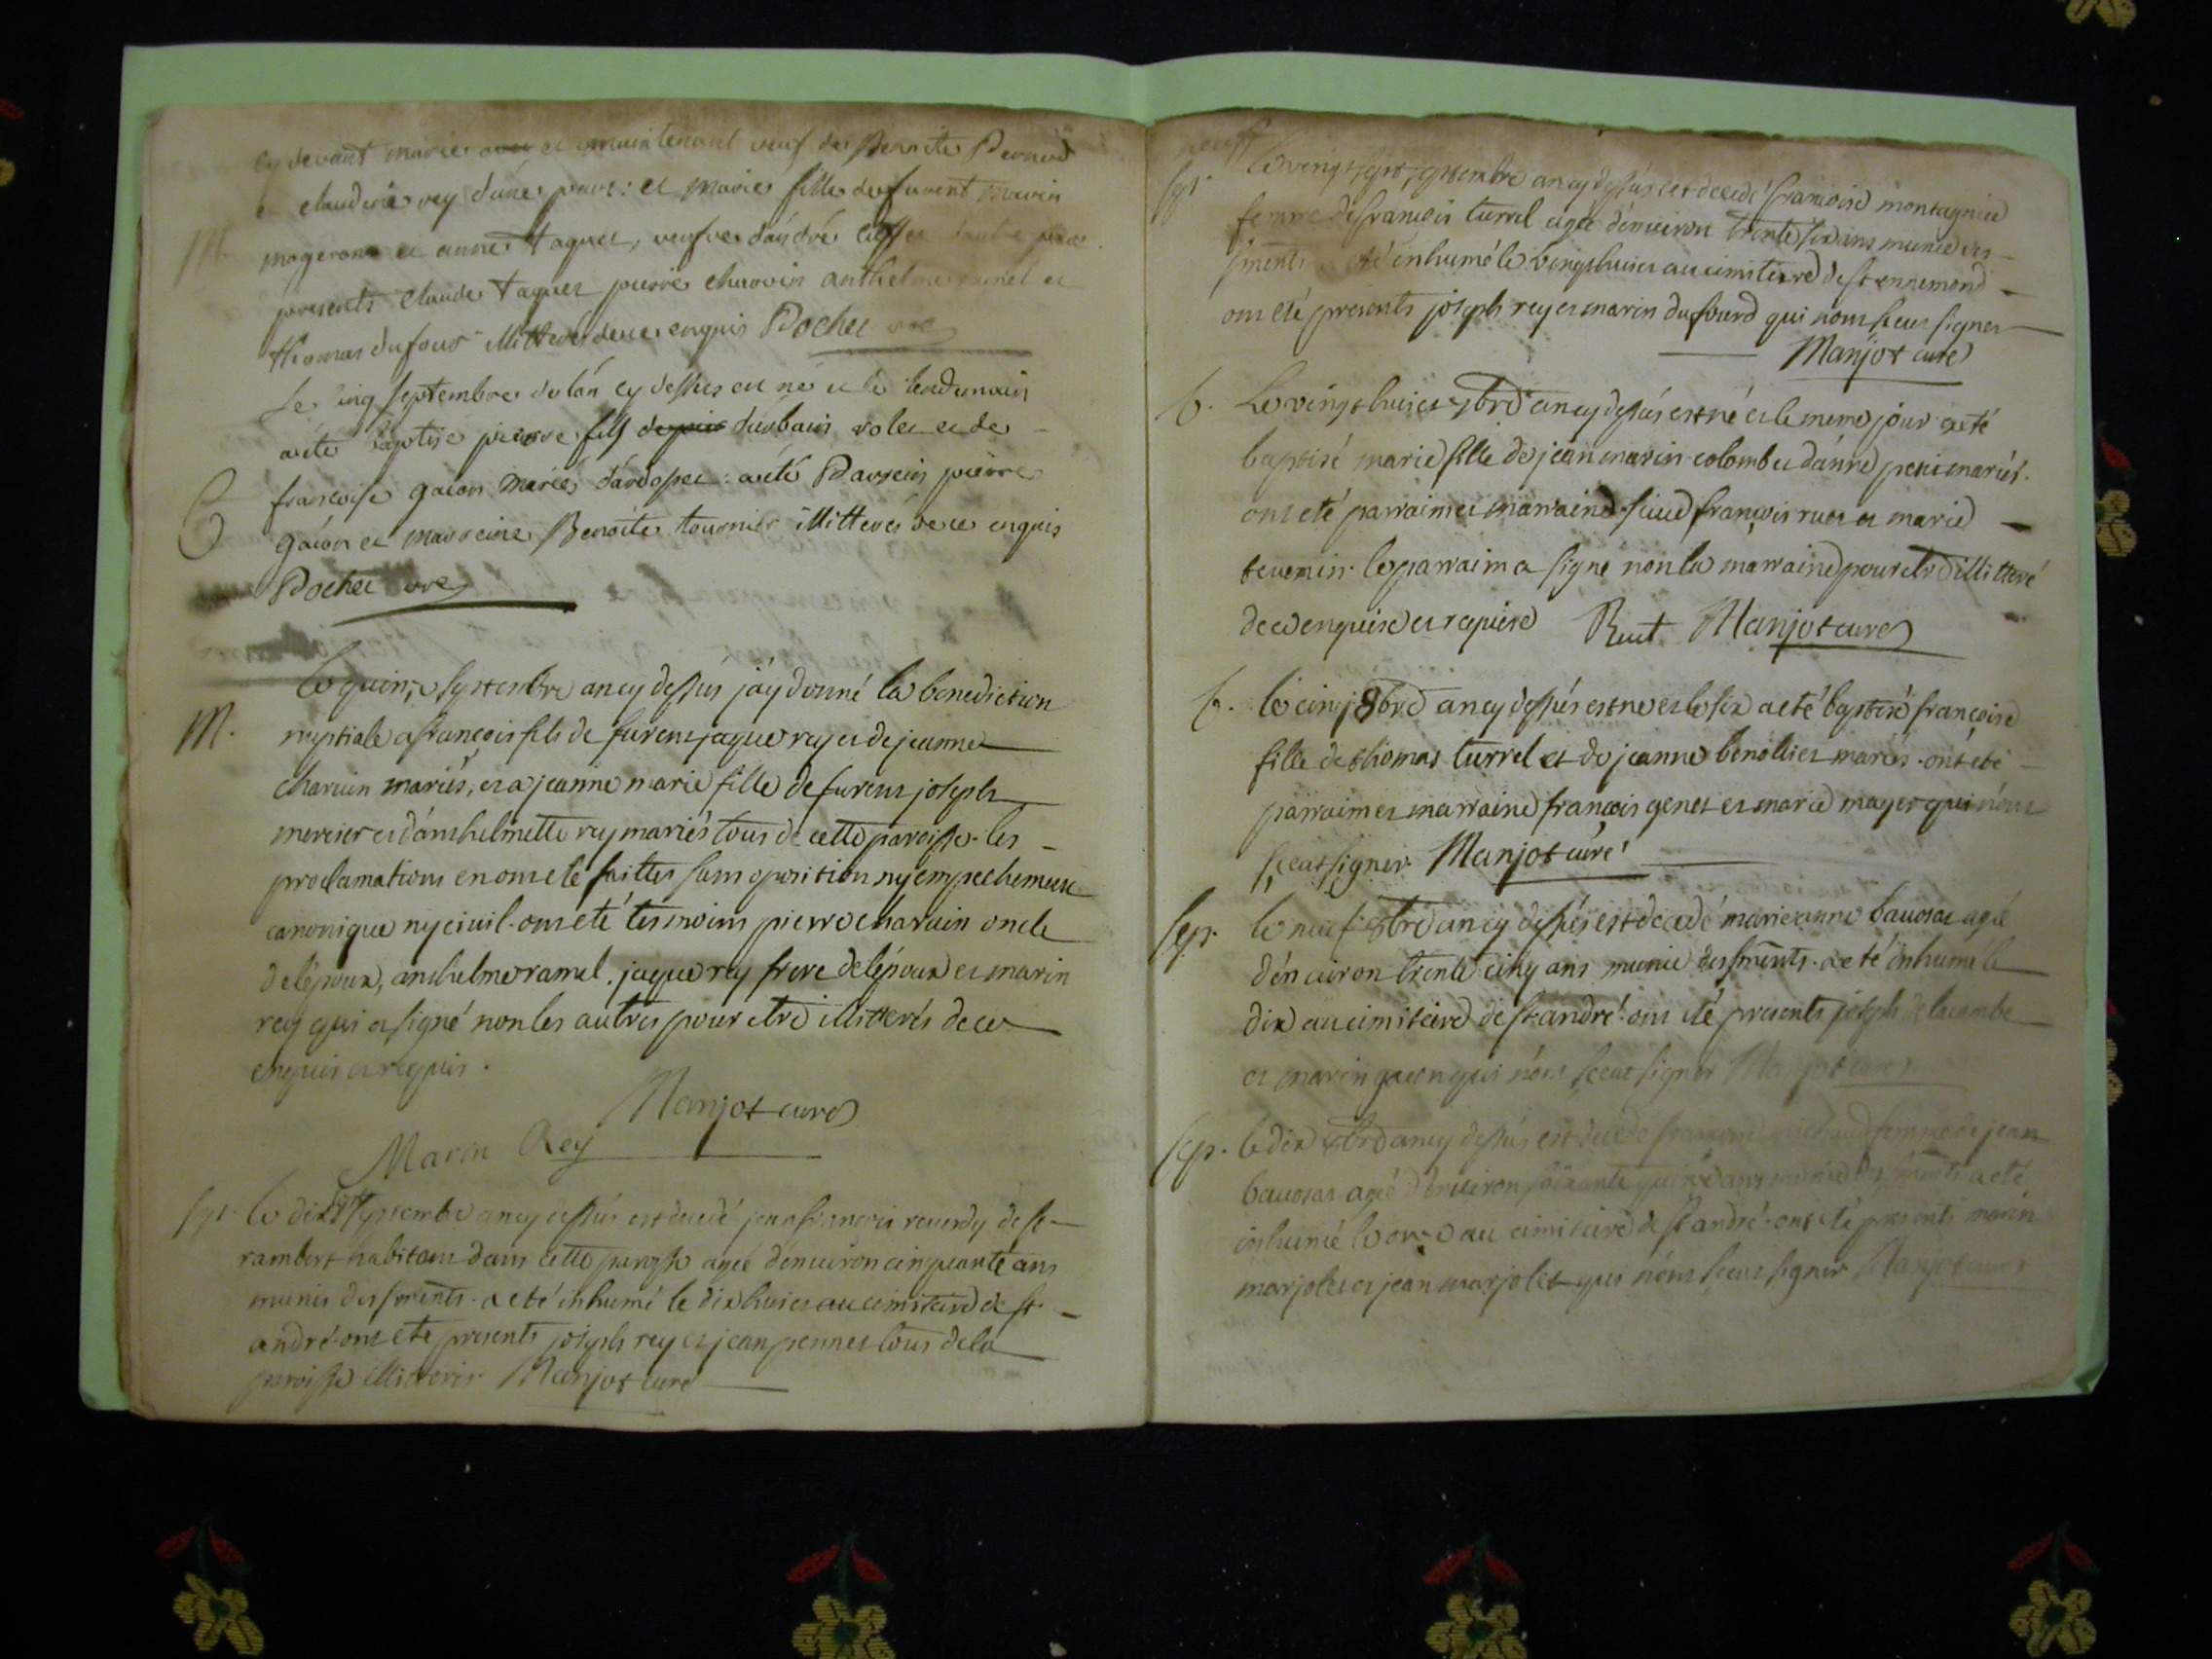 cy devant marié avec et maintenant veuf de Benoite Bernard
et claudine rey d'une part: et marie fille de furent marin
M. mogeron et anne taquet, veufve d'andré
presents claude taquet pierre charvin anthelme ramel et
thomas dufour illitterés de ce enquis Pochet vre
Le cinq septembre de l'an cy dessus est né et le lendemain
a été baptisé pierre fils depuis d'urbain rolet et de
B françoise gacon mariés d'ardosset: a été Parrein pierre
gacon et marreine Benoite tournier illitterés de ce enquis
Pochet vre
Le quinze septembre an cy dessus j'ay donné la benediction
M. nuptiale a francois fils de furent jaque rey et de jeanne
charvin mariés, et a jeanne marie fille de furent joseph
mercier et d'anthelmette rey mariés tous de cette paroisse. les
proclamations en ont eté faittes sans oposition ny empechement
canonique ny civil. ont eté tesmoins pierre charvin oncle
de lépoux, anthelme ramel. jaque rey frere de lépoux et marin
rey qui a signé non les autres pour etre illitterés de ce
enquis et requis.
Manjot curé
Marin Rey
Sep. Le dix sept septembre an cy dessus est decedé jean francois reverdy de st
rambert habitant dans cette paroisse agé d'enuiron cinquante ans
munis des sments. a eté inhumé le dix huict au cimitiere de st
andré. ont eté presents joseph rey et jean pennet tous de la
paroisse illitterés Manjot curé
Sep. Le vingt sept septembre an cy dessus est decedé francoise montagnie
femme de francois turrel agée d'enuiron trente six ans munie des
sments eté inhumé le vingt huict au cimitiere de st ennemond
ont eté presents joseph rey et marin dufourd qui nont sceu signer
Manjot curé
b. Le vingt huict 7bre an cy dessus est né et le meme jour a eté
baptisé marie fille de jean marin colomb et d'anne petit mariés.
ont eté parrain et marraine sieur francois ruet et marie
tevenin. le parrain a signé non la marraine pour etre illitteré
de ce enquise et requise Ruet Manjot curé
b. le cinq 8bre an cy dessus est né et le six a eté baptisé françoise
fille de thomas turrel et de jeanne benollier mariés. ont eté
parrain et marraine francois genet et marie mayet qui nont
sceut signer. Manjot curé
Sep. le neuf 8bre an cy dessus est decedé marie anne bauosat agié
d'enuiron trente cinq ans munie des sments. a eté inhumé le
dix au cimitiere de st andré. ont eté presents joseph delacombe
et marin gacon qui nónt sceut signer Manjot curé
Sep. le dix 8bre an cy dessus est decedé femme de jean
bauosat agié d'enuiron soixante quinze ans munie des sments a eté
inhumé le onze au cimitiere de st andré. ont eté presents marin
marjolet et jean marjolet qui nónt sceut signer Manjot curé